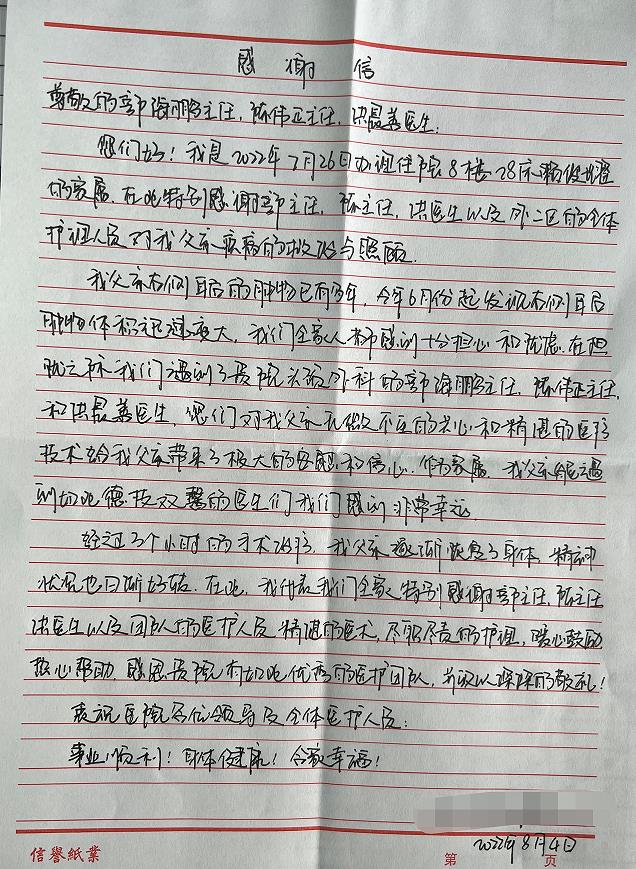 感谢信
尊敬的郭海鹏主任,陈伟正主任,洪晨善医生:
您们好!我是2022年7月26日办理住院8楼28床
的家属,在此特别感谢郭主任,陈主任,洪医生以及外二区的全体
护理人员对我父亲疾病的救治与照顾.
我父亲右侧耳后的肿物已有多年,今年6月份起发现右侧耳后
肿物体积迅速变大,我们全家人都感到十分担心和忧虑.在担
忧之际我们遇到了贵院头颈外科的郭海鹏主任,陈伟正主任,
和洪晨善医生,您们对我父亲无微不至的关心和精湛的医疗
技术给我父亲带来了极大的安慰和信心.作为家属,我父亲能遇
到如此德技双馨的医生们我们感到非常幸运
经过3个小时的手术治疗,我父亲逐渐恢复了身体,精神
状况也日渐好转.在此,我代表我们全家特别感谢郭主任,陈主任
洪医生以及团队的医护人员精湛的医术,尽职尽责的护理,暖心鼓励
热心帮助.感恩贵院有如此优秀的医护团队,并致以深深的敬礼!
衷祝医院各位领导及全体医护人员:
事业顺利!身体健康!合家幸福!
2022年8月4日
信誉紙業 第 页